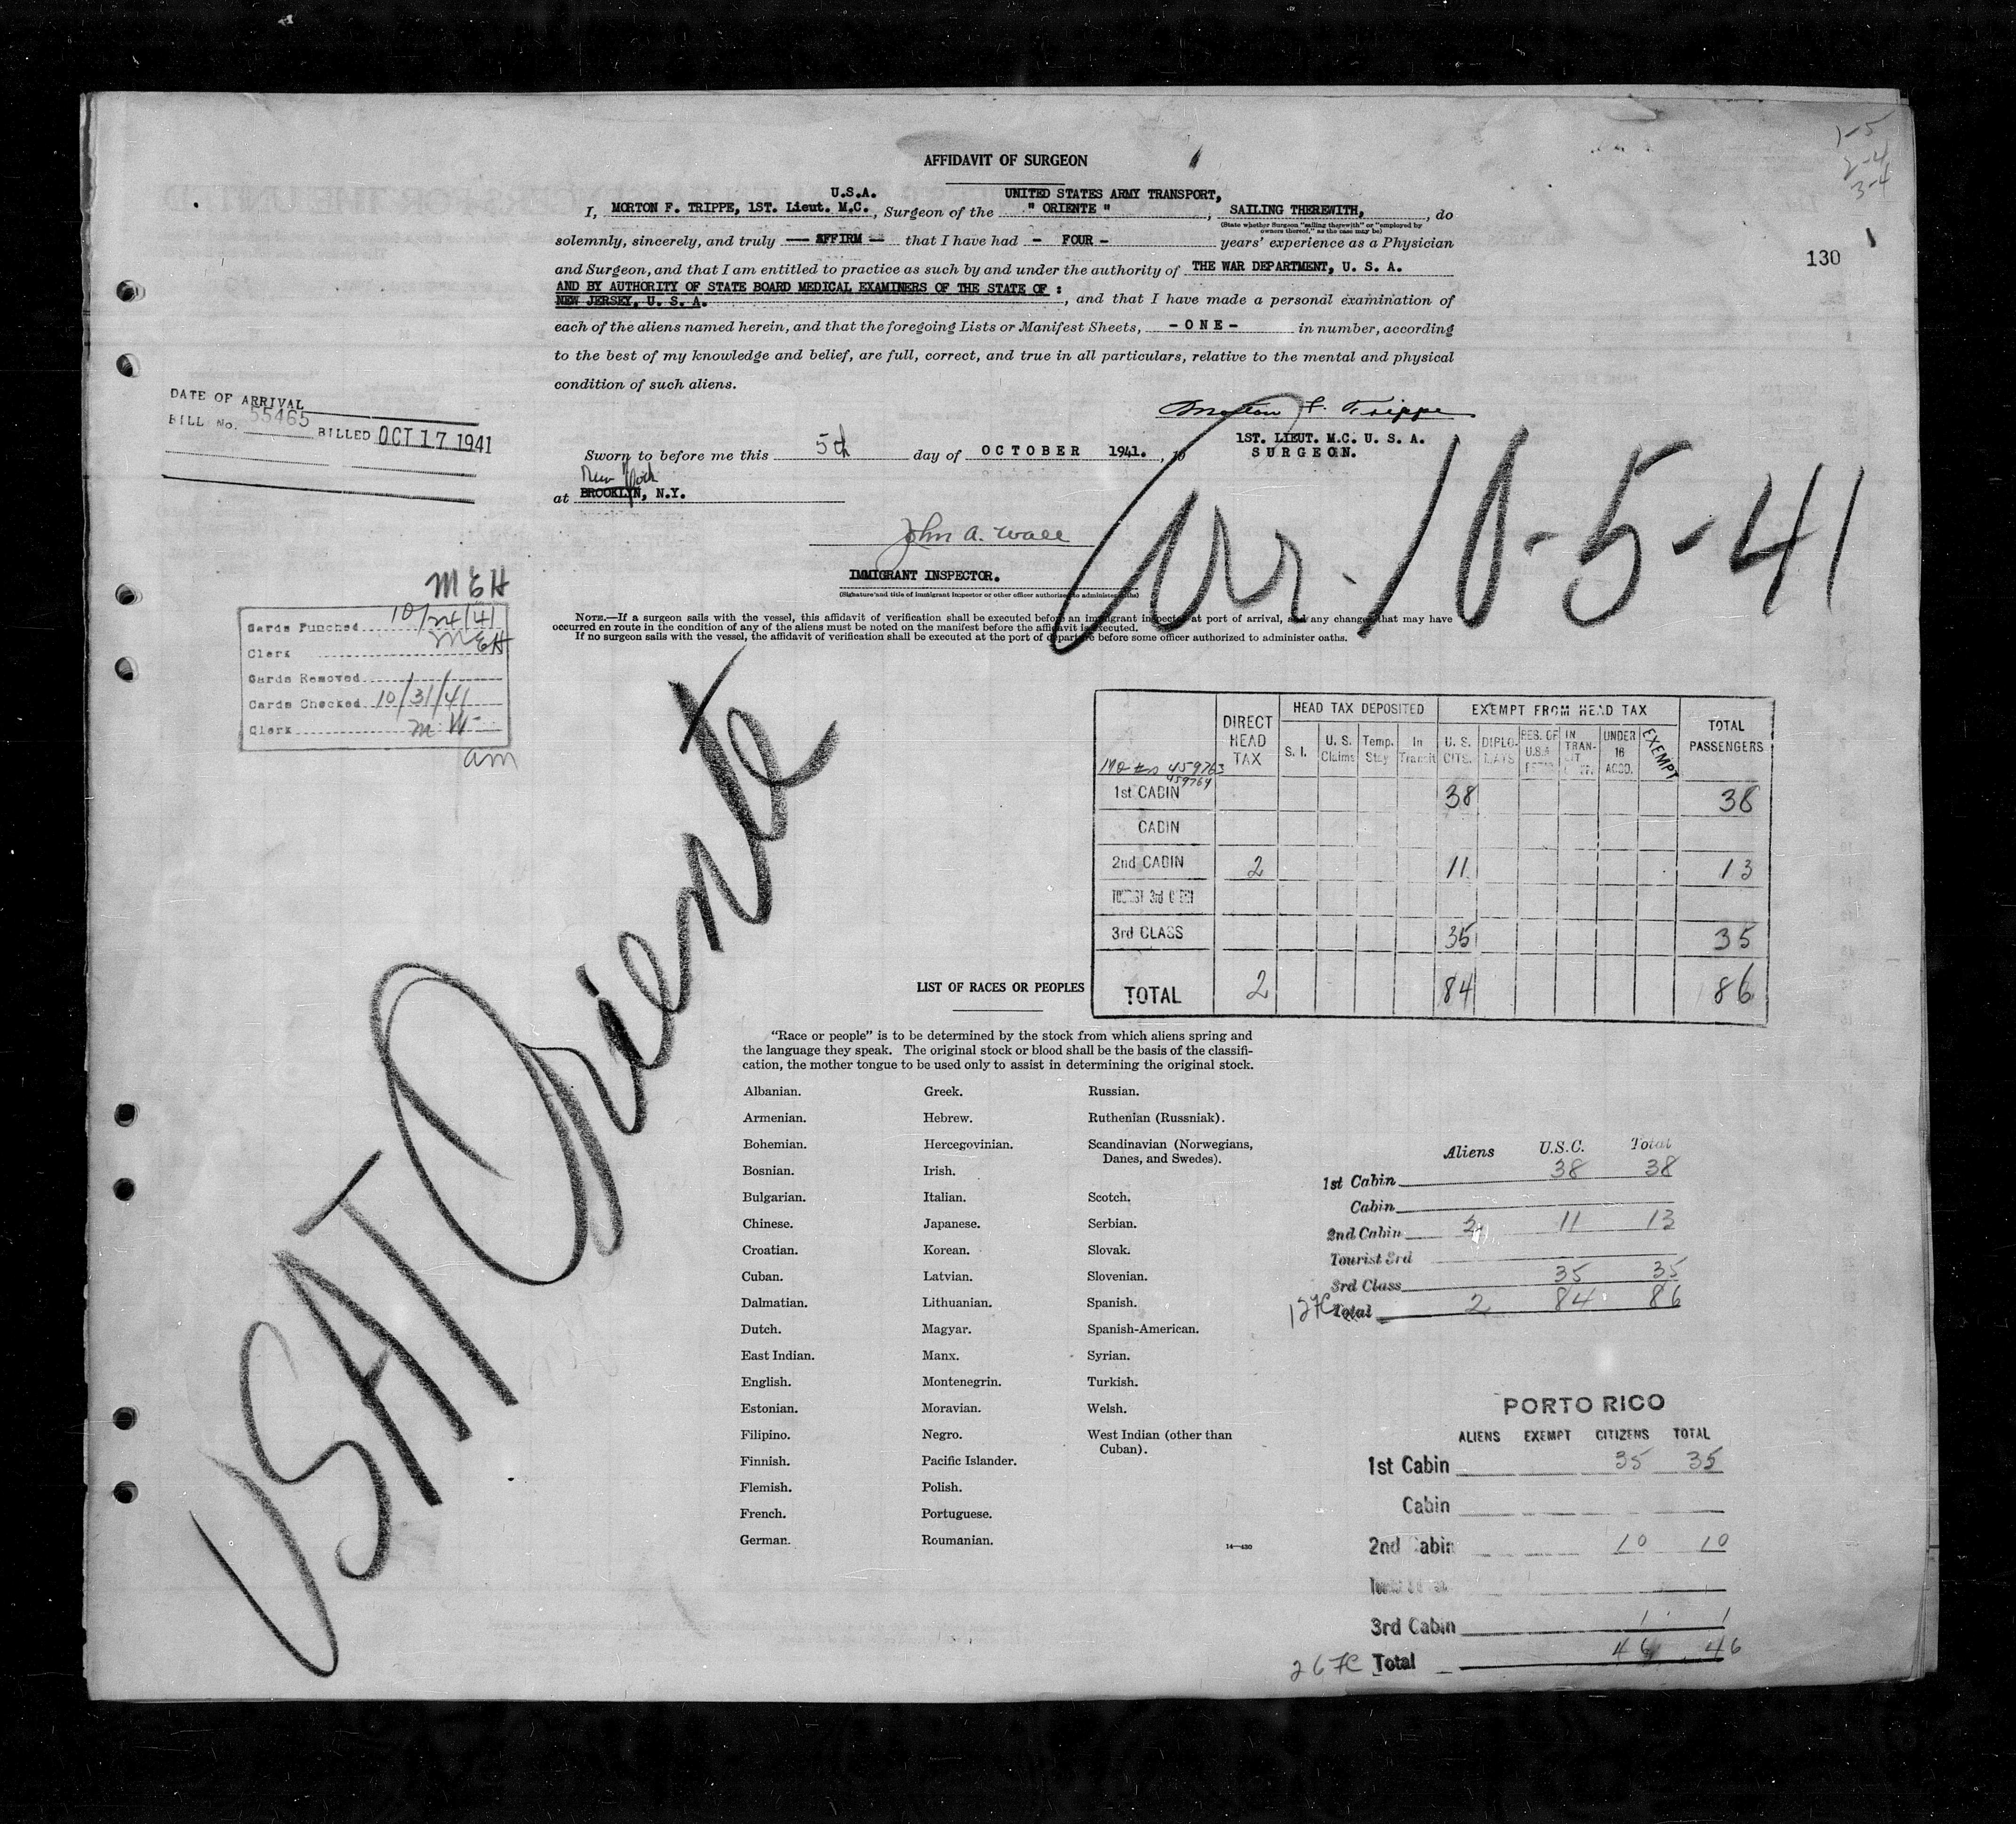 1-5
2-4
3-4
130
AFFIDAVIT OF SURGEON
I, MORTON F. TRIPPE, 1ST. Lieut. M.C. U.S.A., Surgeon of the UNITED STATES ARMY TRANSPORT, " ORIENTE ", SAILING THEREWITH, , do
(State whether Surgeon "sailing therewith" or "employed by
owners thereof," as the case may be)
solemnly, sincerely, and truly — AFFIRM — that I have had - FOUR - years' experience as a Physician
and Surgeon, and that I am entitled to practice as such by and under the authority of THE WAR DEPARTMENT, U. S. A.
AND BY AUTHORITY OF STATE BOARD MEDICAL EXAMINERS OF THE STATE OF :
NEW JERSEY, U. S. A. , and that I have made a personal examination of
each of the aliens named herein, and that the foregoing Lists or Manifest Sheets, - O N E - in number, according
to the best of my knowledge and belief, are full, correct, and true in all particulars, relative to the mental and physical
condition of such aliens.
Morton F. Trippe
1ST. LIEUT. M.C. U. S. A.
SURGEON.
Sworn to before me this 5th day of OCTOBER 1941. , 19
New York
at BROOKLYN, N.Y.
John A. Wall
IMMIGRANT INSPECTOR.
(Signature and title of immigrant inspector or other officer authorized to administer oaths)
NOTE.—If a surgeon sails with the vessel, this affidavit of verification shall be executed before an immigrant inspector at port of arrival, and any changes that may have
occurred en route in the condition of any of the aliens must be noted on the manifest before the affidavit is executed.
If no surgeon sails with the vessel, the affidavit of verification shall be executed at the port of departure before some officer authorized to administer oaths.
Arr. 10-5-41
DATE OF ARRIVAL
BILL No. 55465 BILLED OCT 17 1941
MEH
Cards Punched 10/24/41
Clerk MEH
Cards Removed
Cards Checked 10/31/41
Clerk M.W.
am
USAT Oriente
DIRECT HEAD TAX HEAD TAX DEPOSITED EXEMPT FROM HEAD TAX TOTAL PASSENGERS
S. I. U. S. Claims Temp. Stay In Transit U. S. CITS. DIPLO- MATS RES. OF U.S.A. IN TRAN- SIT UNDER 16 ACCD. EXEMPT
459763
459764
1st CABIN 38 38
CABIN
2nd CABIN 2 11 13
TOURIST 3rd
3rd CLASS 35 35
TOTAL 2 84 86
LIST OF RACES OR PEOPLES
"Race or people" is to be determined by the stock from which aliens spring and
the language they speak. The original stock or blood shall be the basis of the classifi-
cation, the mother tongue to be used only to assist in determining the original stock.
Albanian. Greek. Russian.
Armenian. Hebrew. Ruthenian (Russniak).
Bohemian. Hercegovinian. Scandinavian (Norwegians,
Danes, and Swedes).
Bosnian. Irish.
Bulgarian. Italian. Scotch.
Chinese. Japanese. Serbian.
Croatian. Korean. Slovak.
Cuban. Latvian. Slovenian.
Dalmatian. Lithuanian. Spanish.
Dutch. Magyar. Spanish-American.
East Indian. Manx. Syrian.
English. Montenegrin. Turkish.
Estonian. Moravian. Welsh.
Filipino. Negro. West Indian (other than
Cuban).
Finnish. Pacific Islander.
Flemish. Polish.
French. Portuguese.
German. Roumanian.
14—430
Aliens U.S.C. Total
1st Cabin 38 38
Cabin
2nd Cabin 2 11 13
Tourist 3rd
3rd Class 35 35
Total 2 84 86
PORTO RICO
ALIENS EXEMPT CITIZENS TOTAL
1st Cabin 35 35
Cabin
2nd Cabin 10 10
3rd Cabin 1 1
Total 46 46